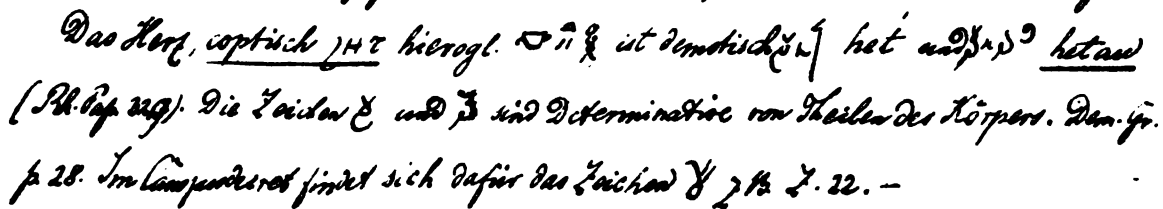 Das Herz, coptisch ϩⲏⲧ hierogl. ist demotisch het und hetau
(Rh. Pap. 329). Die Zeichen und sind Determinative von Theilen des Körpers. Dem. Gr.
p. 28. Im Canopusdecret findet sich dafür das Zeichen z B. Z. 22. –